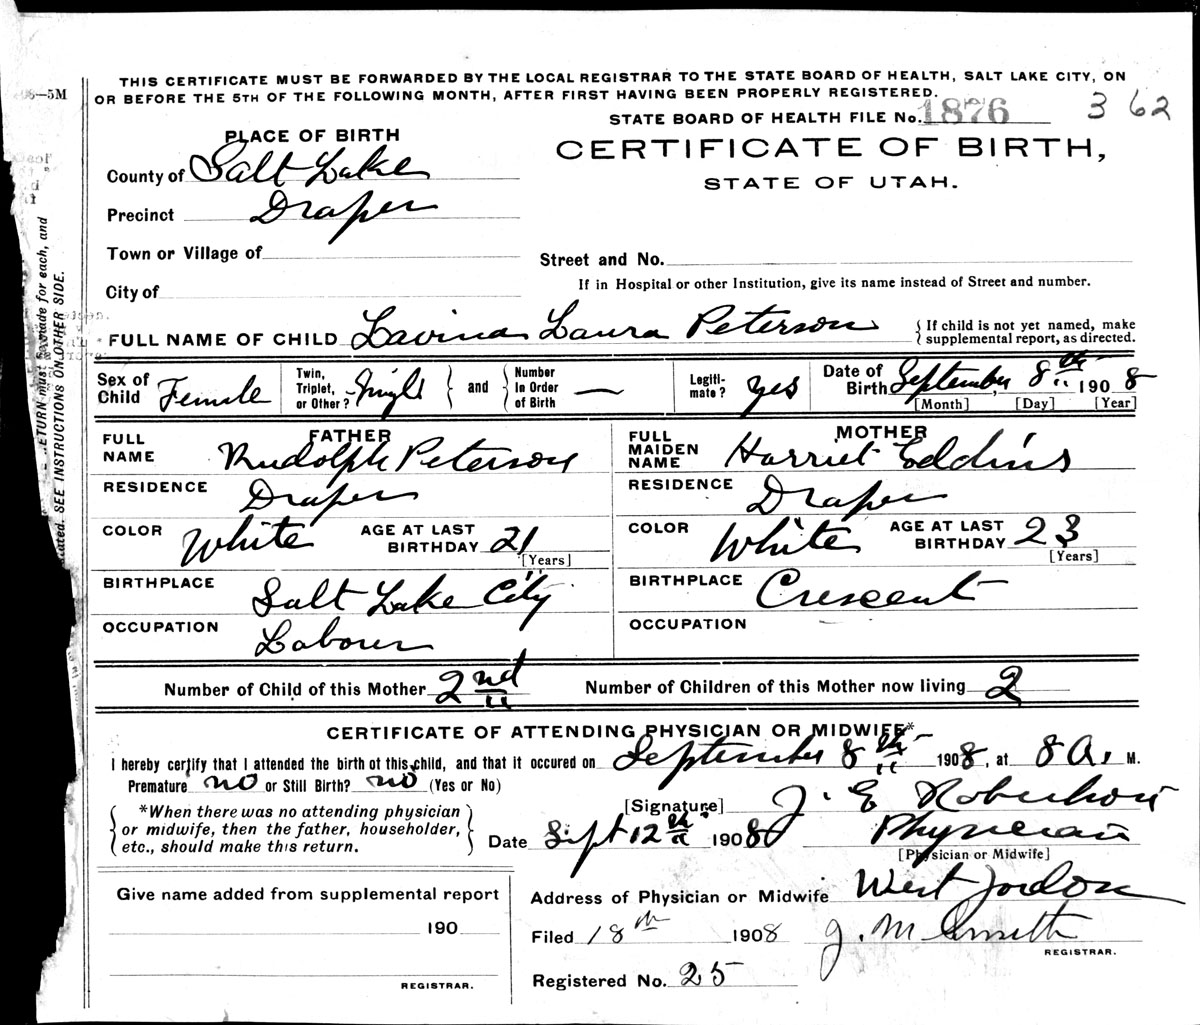 THIS CERTIFICATE MUST BE FORWARDED BY THE LOCAL REGISTRAR TO THE STATE BOARD OF HEALTH, SALT LAKE CITY, ON
OR BEFORE THE 5TH OF THE FOLLOWING MONTH, AFTER FIRST HAVING BEEN PROPERLY REGISTERED.
—5M
STATE BOARD OF HEALTH FILE No. 1876 362
PLACE OF BIRTH
CERTIFICATE OF BIRTH,
STATE OF UTAH.
County of Salt Lake
Precinct Draper
Town or Village of
Street and No.
City of
If in Hospital or other Institution, give its name instead of Street and number.
FULL NAME OF CHILD Lavina Laura Peterson { If child is not yet named, make
supplemental report, as directed.
RETURN must be made for each, and
SEE INSTRUCTIONS ON OTHER SIDE.
Sex of Child Female
Twin, Triplet, or Other? Single } and { Number In Order of Birth —
Legiti-mate? yes
Date of Birth September 8th 1908
[Month] [Day] [Year]
FATHER
FULL NAME Rudolph Peterson
RESIDENCE Draper
COLOR White AGE AT LAST BIRTHDAY 21
[Years]
BIRTHPLACE Salt Lake City
OCCUPATION Laborer
MOTHER
FULL MAIDEN NAME Harriet Eddins
RESIDENCE Draper
COLOR White AGE AT LAST BIRTHDAY 23
[Years]
BIRTHPLACE Crescent
OCCUPATION
Number of Child of this Mother 2nd Number of Children of this Mother now living 2
CERTIFICATE OF ATTENDING PHYSICIAN OR MIDWIFE*
I hereby certify that I attended the birth of this child, and that it occured on September 8th 1908, at 8 A. M.
Premature no or Still Birth? no (Yes or No)
{ *When there was no attending physician
or midwife, then the father, householder,
etc., should make this return. }
[Signature] J. E Robertson
Date Sept 12th 1908 Physician
[Physician or Midwife]
Give name added from supplemental report
190
REGISTRAR.
Address of Physician or Midwife West Jordon
Filed 18th 1908 J. M Smith
REGISTRAR.
Registered No. 25